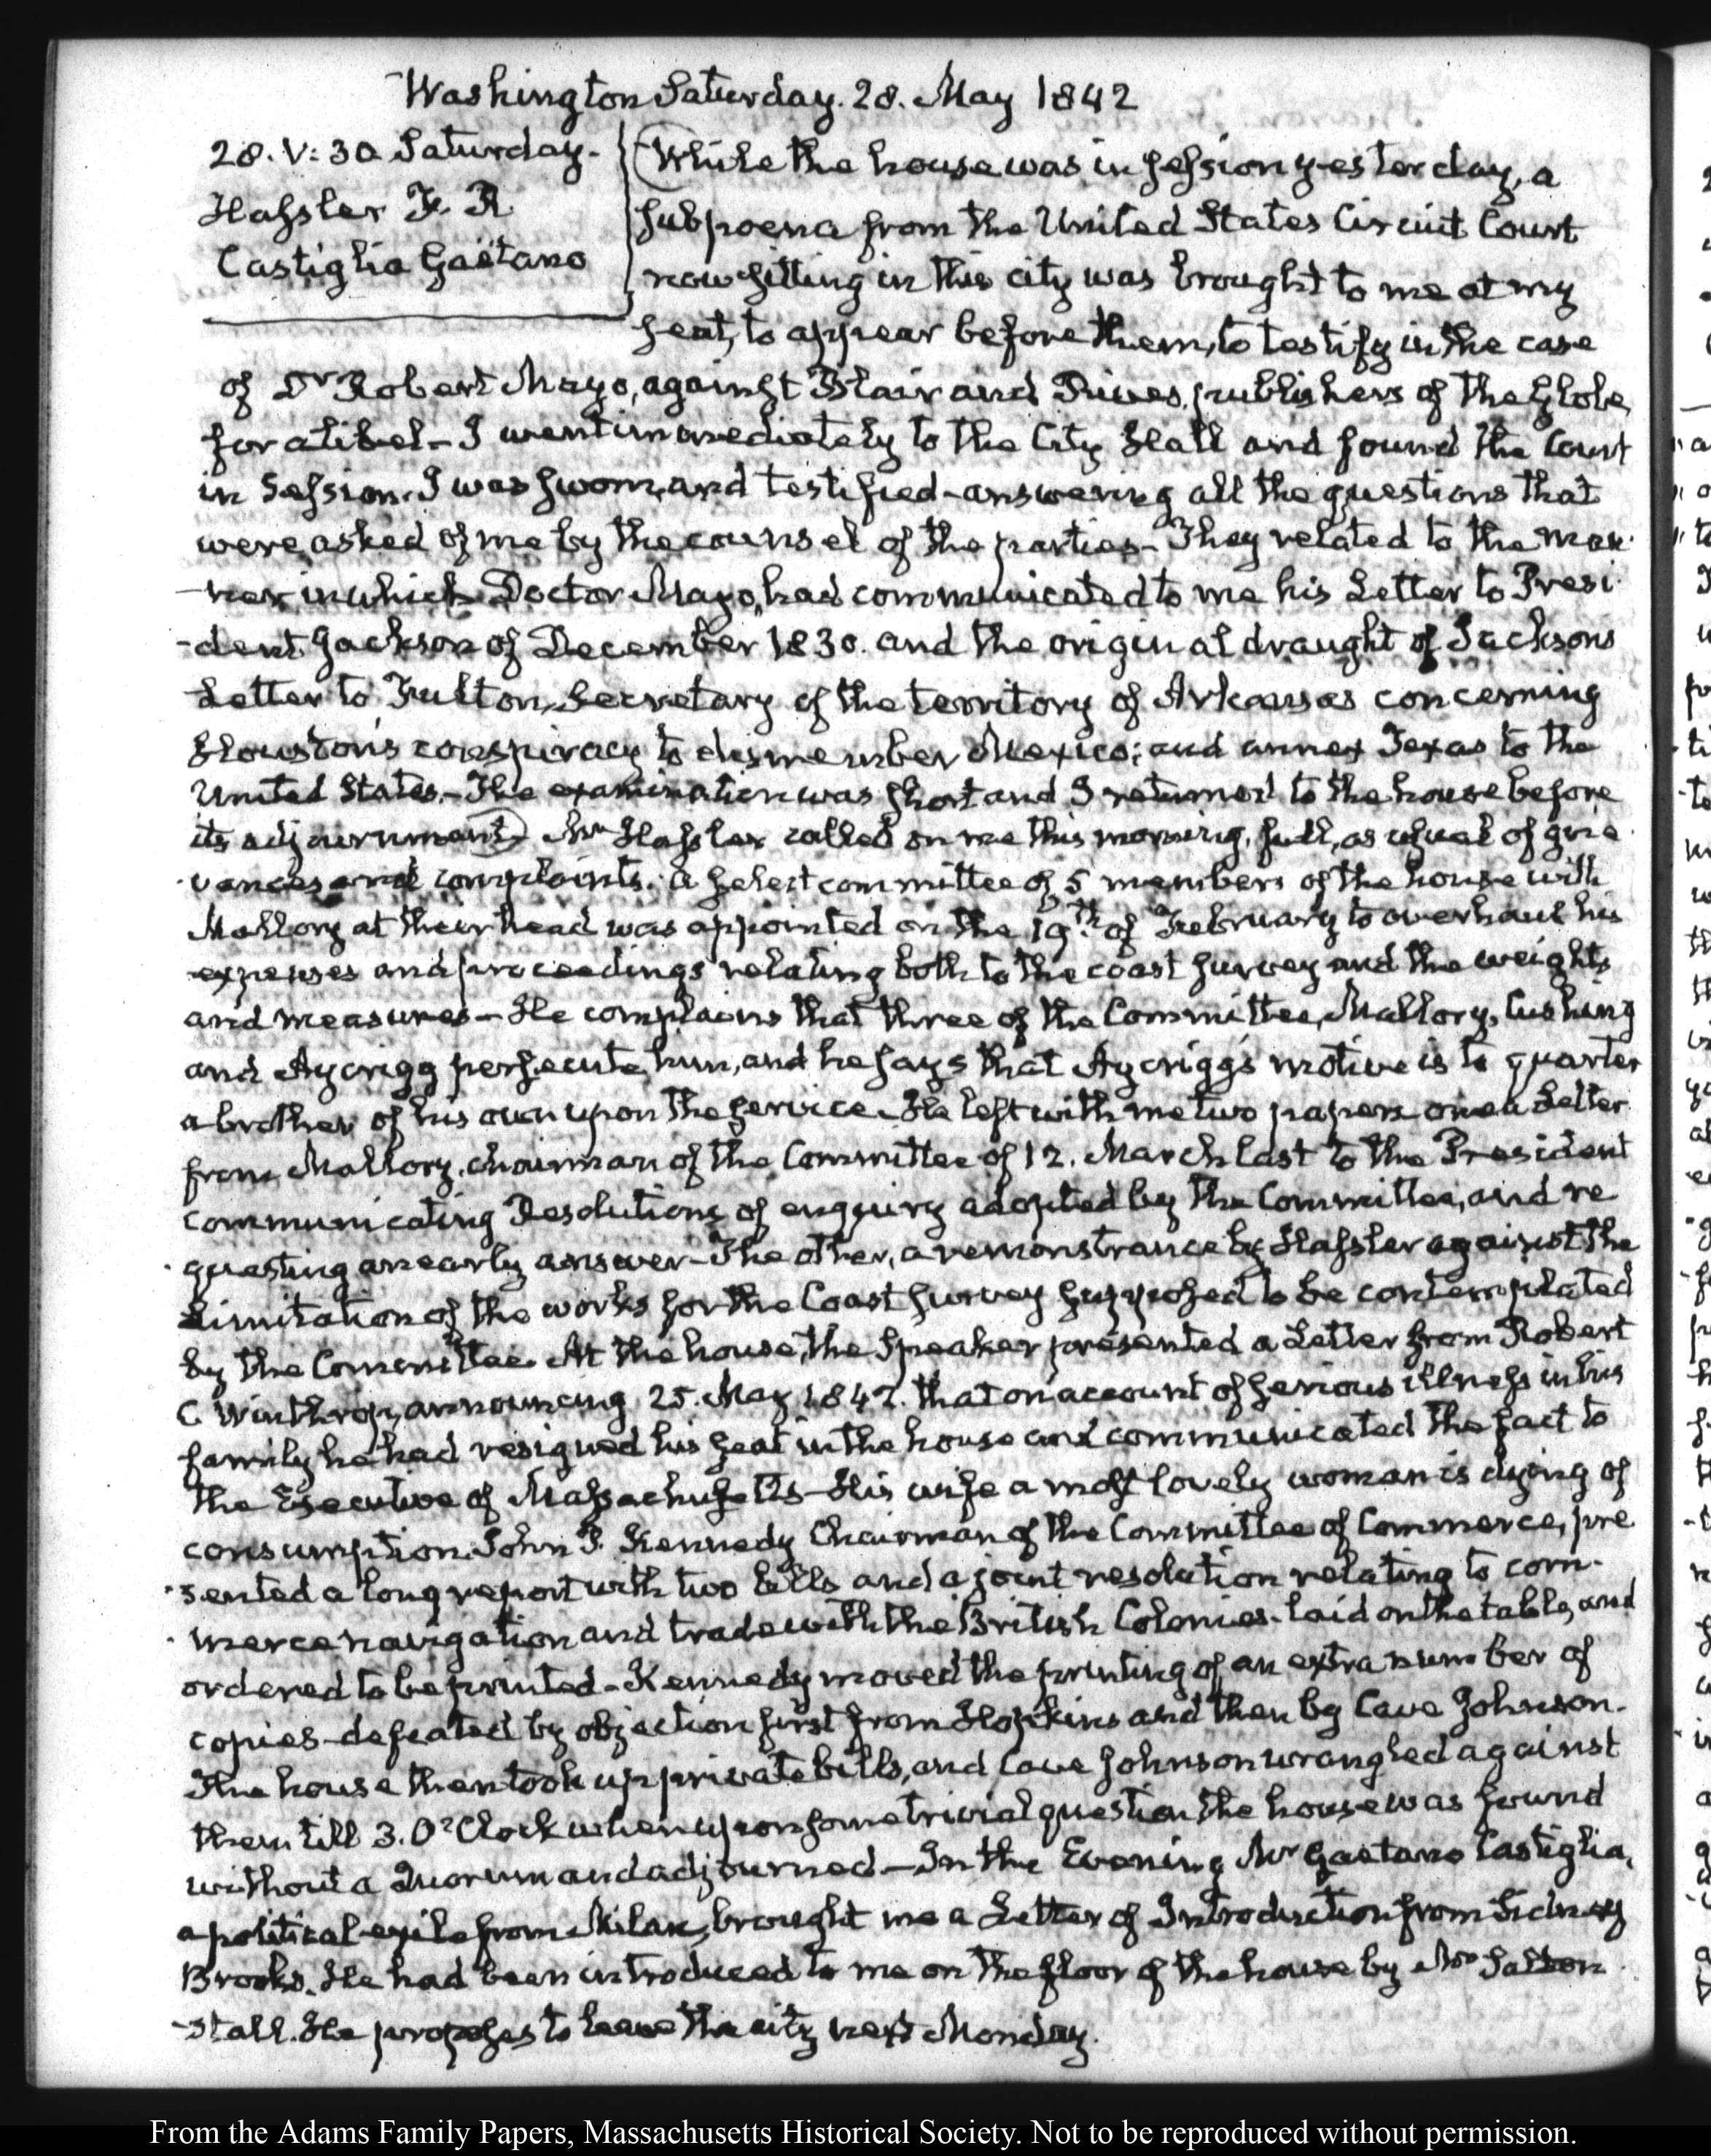 Washington Saturday. 28. May 1842
28. V: 30 Saturday.
Hassler F. R.
Castiglia Gaëtano
While the house was in session yesterday, a
subpoena from the United States Circuit Court
now sitting in this city was brought to me at my
seat, to appear before them, to testify in the case
of Dr Robert Mayo, against Blair and Rives, publishers of the Globe,
for a libel - I went immediately to the City Hall and found the Court
in Session. I was sworn, and testified - answering all the questions that
were asked of me by the counsel of the parties - They related to the man-
-ner in which Doctor Mayo, had communicated to me his Letter to Presi-
-dent Jackson of December 1830. and the original draught of Jacksons
Letter to Fulton, Secretary of the territory of Arkansas concerning
Houston's conspiracy to dismember Mexico; and annex Texas to the
United States. - The examination was short and I returned to the house before
its adjournment. Mr Hassler called on me this morning, full, as usual of grie-
-vances and complaints. A select committee of 5 members of the house with
Mallory at their head was appointed on the 19th. of February to overhaul his
expenses and proceedings relating both to the coast survey and the weights
and measures - He complains that three of the Committee, Mallory, Cushing
and Aycrigg persecute him, and he says that Aycrigg's motive is to quarter
a brother of his own upon the service - He left with me two papers one a Letter
from Mallory, chairman of the Committee of 12. March last to the President
communicating Resolutions of enquiry adopted by the Committee, and re
-questing an early answer - The other, a remonstrance by Hassler against the
Limitation of the works for the Coast survey supposed to be contemplated
by the Committee. At the house, the Speaker presented a Letter from Robert
C. Winthrop, announcing 25. May 1842. that on account of serious illness in his
family he had resigned his seat in the house and communicated the fact to
the Executive of Massachusetts - His wife a most lovely woman is dying of
consumption. John P. Kennedy Chairman of the Committee of Commerce, pre
-sented a long report with two bills and a joint resolution relating to com-
-merce navigation and trade with the British Colonies - laid on the table, and
ordered to be printed - Kennedy moved the printing of an extra number of
copies - defeated by objection first from Hopkins and then by Cave Johnson.
The house then took up private bills, and Cave Johnson wrangled against
them till 3. O'Clock when upon some trivial question the house was found
without a Quorum and adjourned - In the Evening Mr Gaetano Castiglia,
a political exile from Milan, brought me a Letter of Introduction from Sidney
Brooks. He had been introduced to me on the floor of the house by Mr Salton
-stall. He proposes to leave the city next Monday.
From the Adams Family Papers, Massachusetts Historical Society. Not to be reproduced without permission.